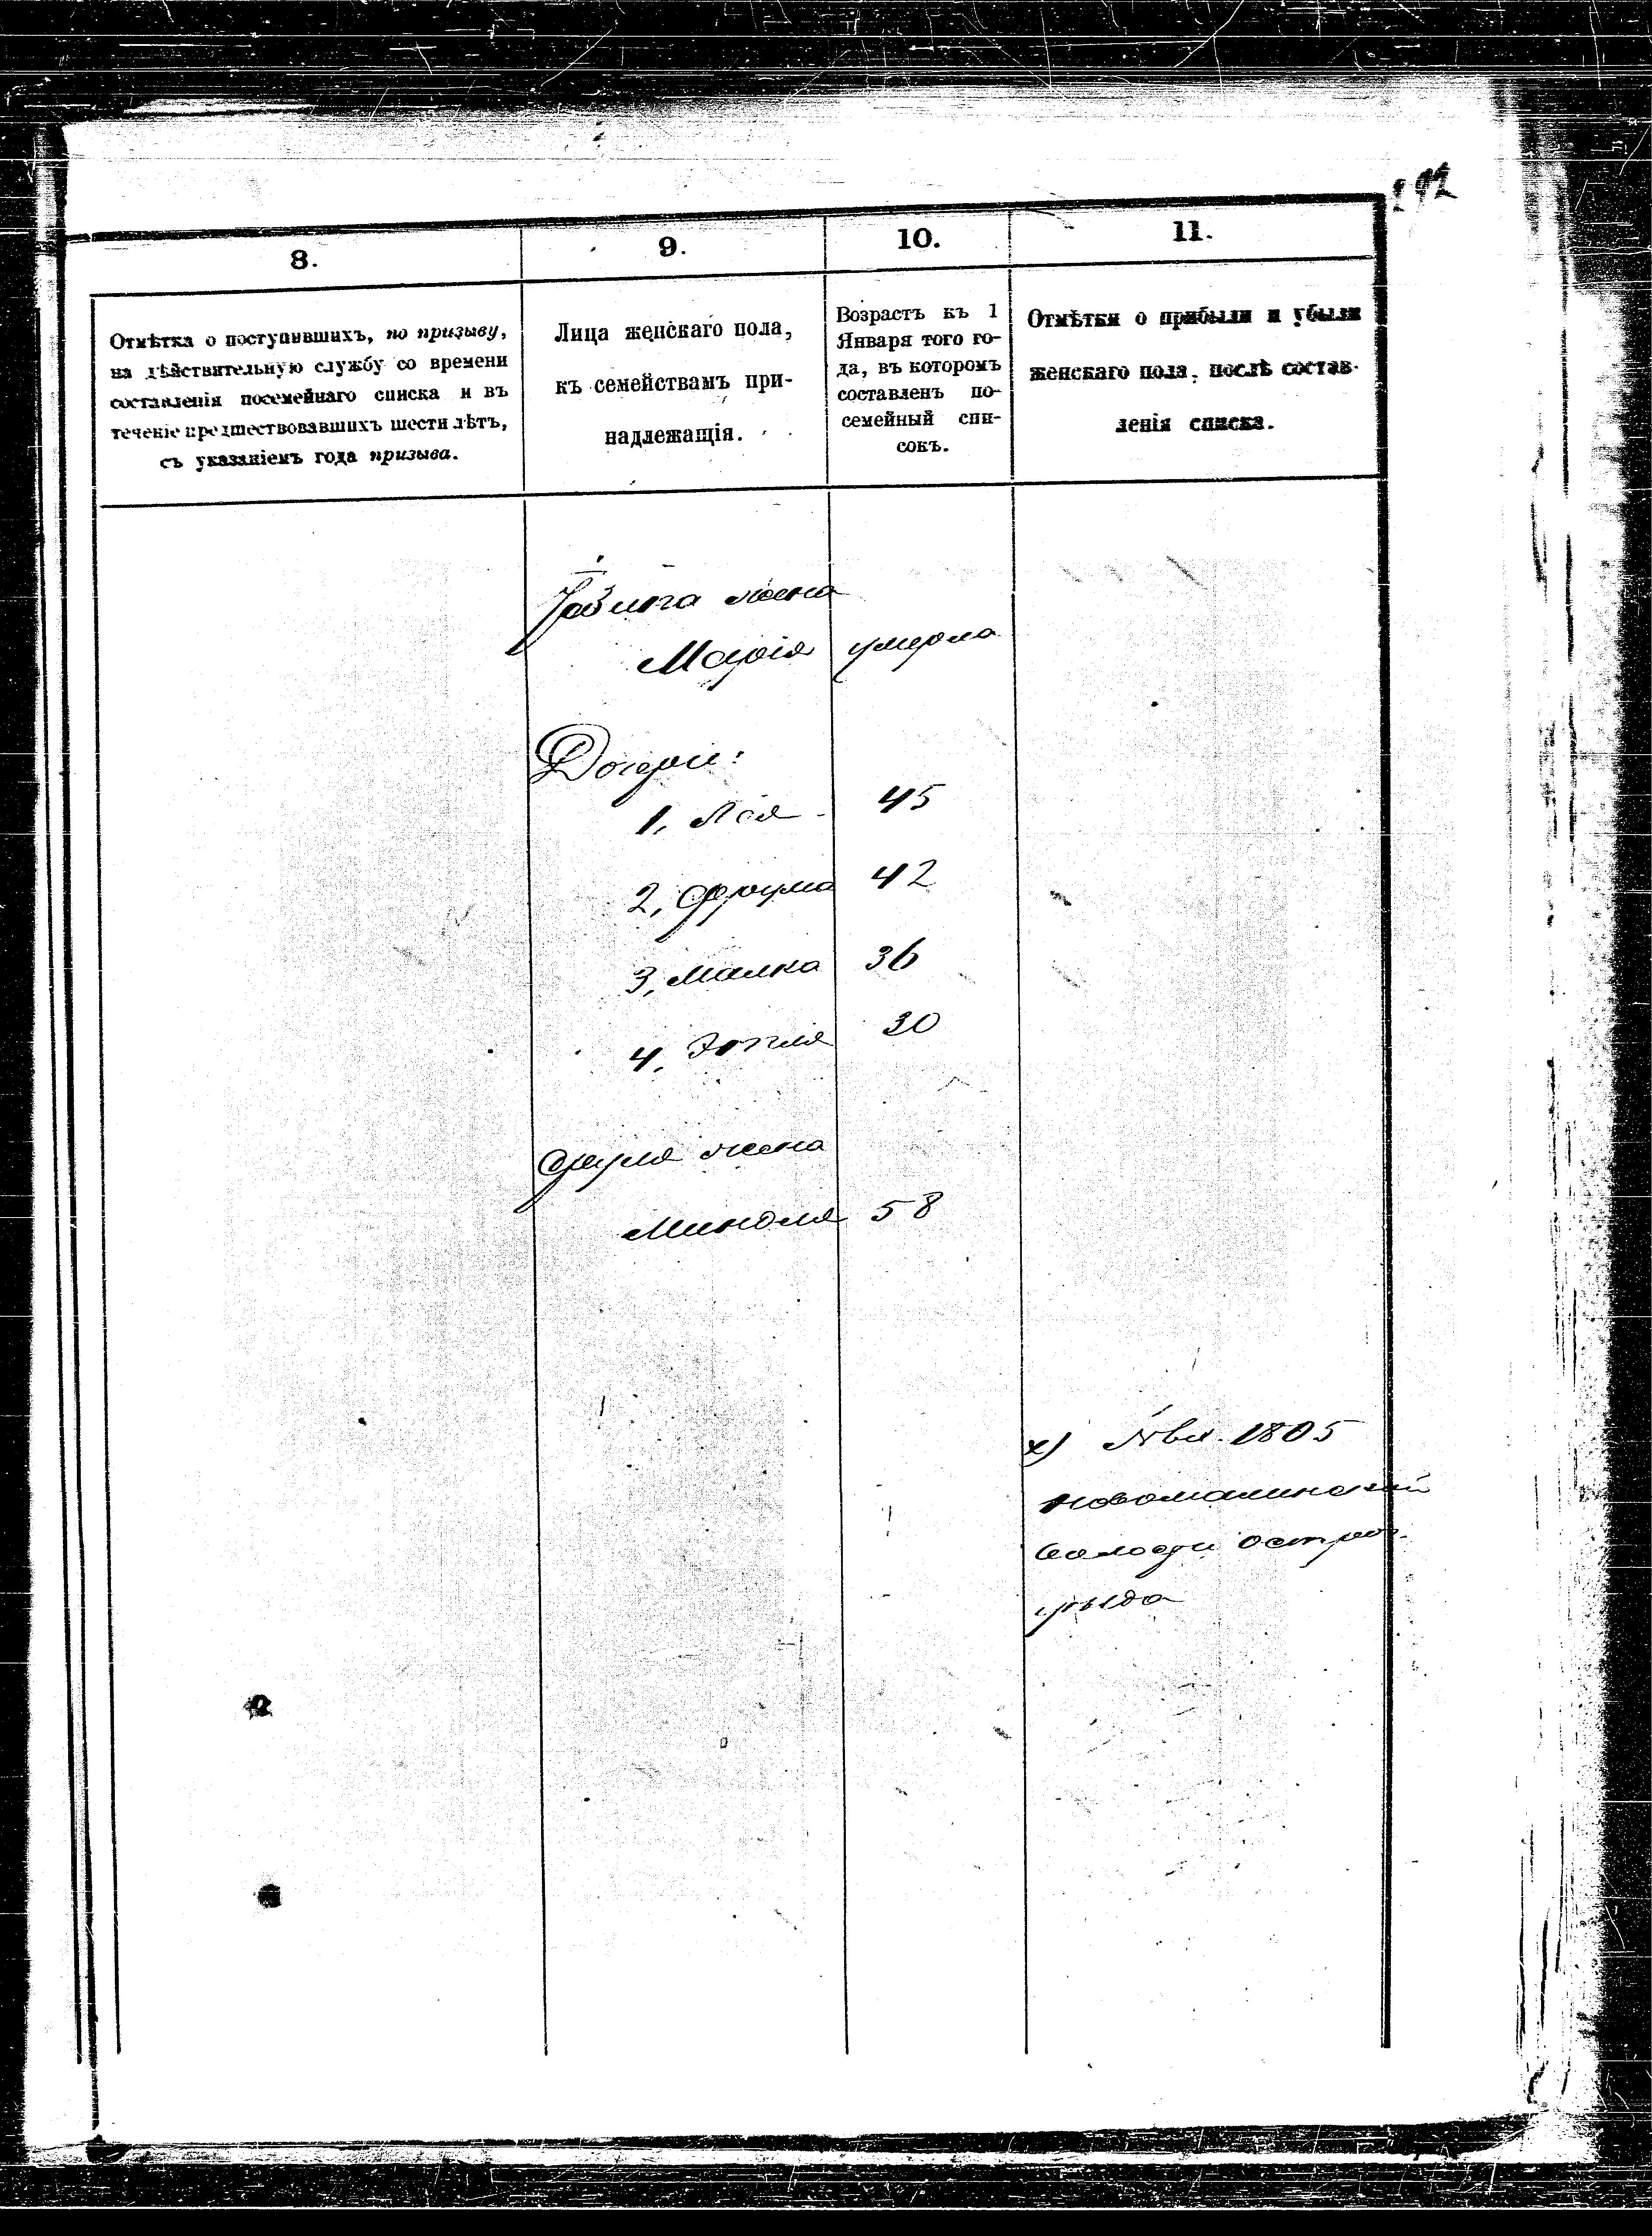 292
8.
9.
10.
11.
Отмѣтка о поступившихъ, по призыву,
на дѣйствительную службу со времени
составленія посемейнаго списка и въ
теченіе предшествовавшихъ шести лѣтъ,
съ указаніемъ года призыва.
Лица женскаго пола,
къ семействамъ при-
надлежащія.
Возрастъ къ 1
Января того го-
да, въ которомъ
составленъ по-
семейный спи-
сокъ.
Отмѣтки о прибыли и убыли
женскаго пола, послѣ состав-
ленія списка.
жена
Марія умерла
Дочери:
1, Лея 45
2, Фрума 42
3, Малка 36
4, Этля 30
жена
Миндля 58
х) 1805
Новомалинской
Волости Острог.
уѣзда